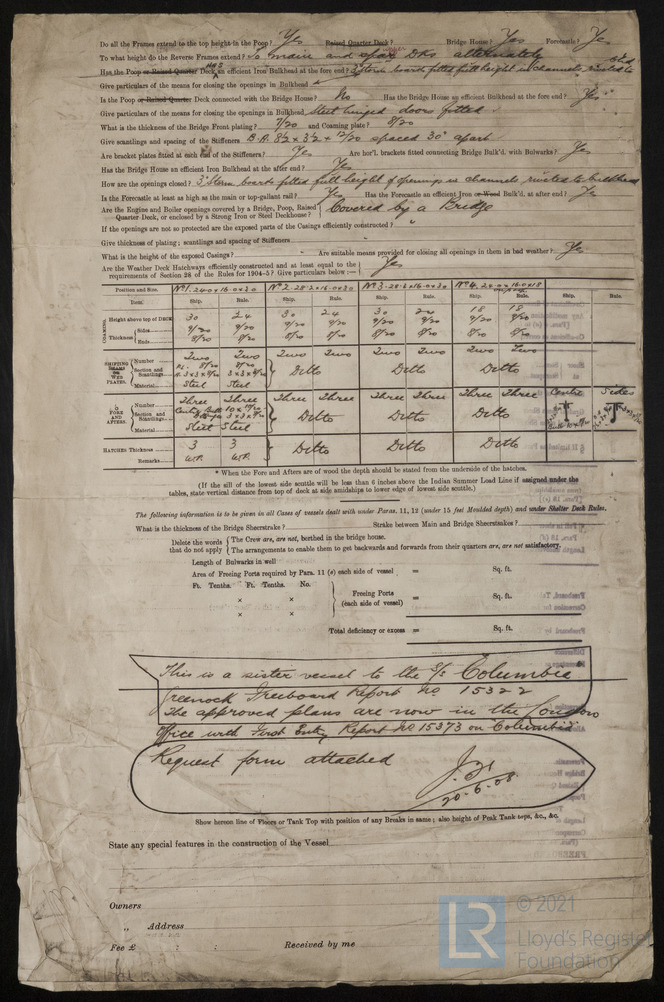 Do all the Frames extend to the top height in the Poop? Yes Raised Quarter Deck? Bridge House? Yes Forecastle? Yes
To what height do the Reverse Frames extend? To main and upper DKs alternately
Has the Poop or Raised Quarter Deck an efficient Iron Bulkhead at the fore end? 3" storm boards fitted full height in channels riveted to bhd
Give particulars of the means for closing the openings in Bulkhead
Is the Poop or Raised Quarter Deck connected with the Bridge House? No Has the Bridge House an efficient Bulkhead at the fore end? Yes
Give particulars of the means for closing the openings in Bulkhead Steel hinged doors fitted
What is the thickness of the Bridge Front plating? 7/20 and Coaming plate? 8/20
Give scantlings and spacing of the Stiffeners B A 8½ x 3½ x 12/20 spaced 30" apart
Are bracket plates fitted at each end of the Stiffeners? Yes Are hor'l. brackets fitted connecting Bridge Bulk'd. with Bulwarks? Yes
Has the Bridge House an efficient Iron Bulkhead at the after end? Yes
How are the openings closed? 3" storm boards fitted full height of openings in channels riveted to bulkhead
Is the Forecastle at least as high as the main or top-gallant rail? Yes Has the Forecastle an efficient Iron or Wood Bulk'd. at after end? Yes
Are the Engine and Boiler openings covered by a Bridge, Poop, Raised Quarter Deck, or enclosed by a Strong Iron or Steel Deckhouse? Covered by a Bridge
If the openings are not so protected are the exposed parts of the Casings efficiently constructed? "
Give thickness of plating; scantlings and spacing of Stiffeners
What is the height of the exposed Casings? Are suitable means provided for closing all openings in them in bad weather? Yes
Are the Weather Deck Hatchways efficiently constructed and at least equal to the requirements of Section 28 of the Rules for 1904-5? Give particulars below:— Yes
Position and Size. No 1. 24.0 x 16.0 x 30 No 2 - 28.2 x 16.0 x 30 No 3 - 28.2 x 16.0 x 30 No 4. 24.0 x 16.0 x 18
Item. Ship. Rule. Ship. Rule. Ship. Rule. Ship. Rule. Ship. Rule.
COAMING Height above top of DECK 30 24 30 24 30 24 18 18
Thickness Sides 9/20 9/20 9/20 9/20 9/20 9/20 9/20 9/20
Ends 8/20 8/20 8/20 8/20 8/20 8/20 8/20 8/20
SHIFTING BEAMS OR WEB PLATES. Number Two Two Two Two Two Two Two Two
Section and Scantlings Ditto Ditto Ditto
Material Steel Steel
* FORE AND AFTERS. Number Three Three Three Three Three Three Three Three Centre Sides
Section and Scantlings Ditto Ditto Ditto
Material Steel Steel
HATCHES Thickness 3 3 Ditto Ditto Ditto
Remarks W.P. W.P.
* When the Fore and Afters are of wood the depth should be stated from the underside of the hatches.
(If the sill of the lowest side scuttle will be less than 6 inches above the Indian Summer Load Line if assigned under the
tables, state vertical distance from top of deck at side amidships to lower edge of lowest side scuttle.)
The following information is to be given in all Cases of vessels dealt with under Paras. 11, 12 (under 15 feet Moulded depth) and under Shelter Deck Rules.
What is the thickness of the Bridge Sheerstrake? Strake between Main and Bridge Sheerstrakes?
Delete the words that do not apply The Crew are, are not, berthed in the bridge house.
The arrangements to enable them to get backwards and forwards from their quarters are, are not satisfactory.
Length of Bulwarks in well
Area of Freeing Ports required by Para. 11 (e) each side of vessel = Sq. ft.
Ft. Tenths. Ft. Tenths. No.
× × Freeing Ports (each side of vessel) = Sq. ft.
× ×
Total deficiency or excess = Sq. ft.
This is a sister vessel to the S/S Columbia
Greenock Freeboard Report No 15322
The approved plans are now in the London
Office with First Entry Report No 15373 on Columbia
Request form attached
20-6-08
Show hereon line of Floors or Tank Top with position of any Breaks in same; also height of Peak Tank tops, &c., &c.
State any special features in the construction of the Vessel
Owners
„ Address
Fee £ : : Received by me
LR © 2021
Lloyd's Register
Foundation